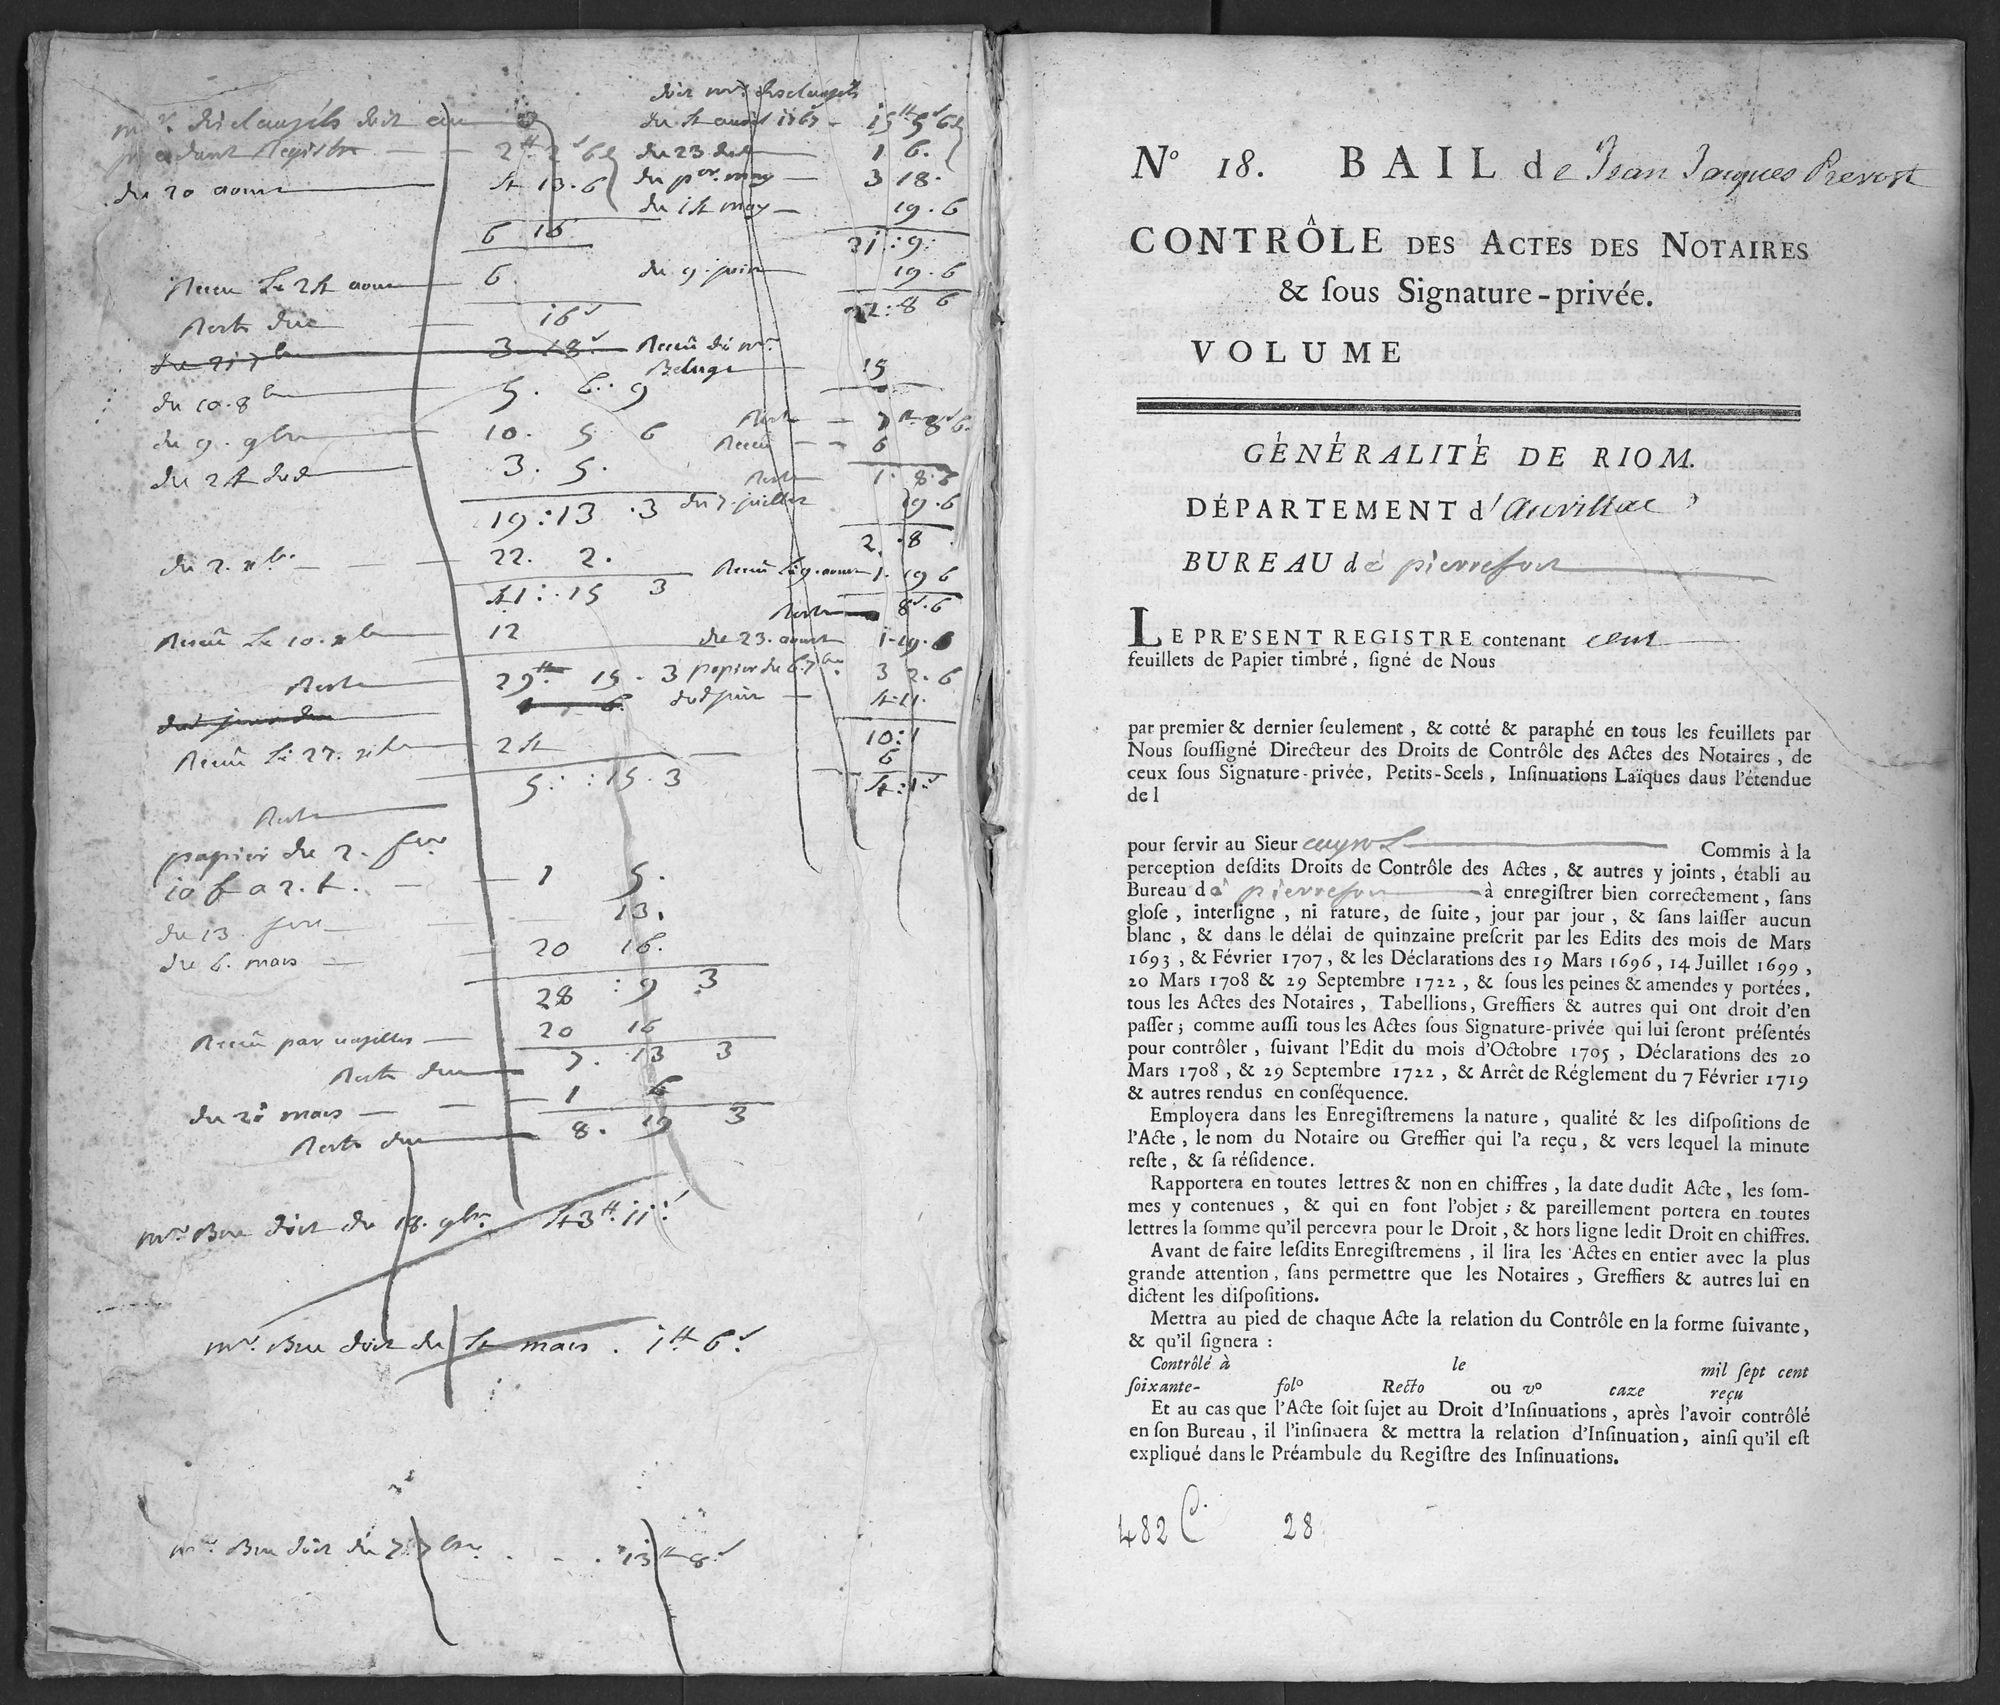 du 20 aoust 4 13. 6
6 16
Receu Le 24 aoust 6
Reste due 16
du 10. 8bre 5. 6. 9
du 9. 9bre 10. 5 6
du 24 dud 3. 5.
19: 13 . 3
du 2. xbre 22. 2.
41: 15 3
Receu Le 10. xbre 12
Reste 29 15. 3
Receu Le 27. xbre 24
5: 15. 3
Reste
papier du 2.
1 5.
du 13. 13.
du 6. mars 20 16.
28: 9 3
Receu par 20 16
Reste due 7. 13 3
du 20 mars 1 6
Reste due 8. 19 3
mr. Bru doit du 18. 9bre 43tt 11s
mr. Bru doit du 4 mars. 1tt 6s
mr. Bru doit du 7. 7bre 13tt 8s
doit mr.
du 4 avril
du 23 dud 1 6.
du per. may 3 18.
du 14 may 19. 6
21: 9:
du 9. juin 19. 6
22: 8 6
Receu de mr.
15
Reste 7tt 8s 6.
Receu 6
Reste 1. 8. 6
du 7. juillet 19. 6
2. 8
Receu Le 9. aoust 1. 19 6
Reste 8s. 6
du 23. aoust 1. 19. 6
papier du 6. 7bre 3 2. 6
dud jour 4. 11.
10: 1
6
4: 1s
No 18. BAIL de Jean Jacques Prevost
CONTRÔLE DES ACTES DES NOTAIRES
& sous Signature-privée.
VOLUME
GÉNÉRALITÉ DE RIOM.
DÉPARTEMENT d'Aurillac
BUREAU de pierrefort
LE PRE'SENT REGISTRE contenant cent
feuillets de Papier timbré, signé de Nous
par premier & dernier seulement, & cotté & paraphé en tous les feuillets par
Nous soussigné Directeur des Droits de Contrôle des Actes des Notaires, de
ceux sous Signature-privée, Petits-Scels, Insinuations Laïques daus l'étendue
de l
pour servir au Sieur cayrol Commis à la
perception desdits Droits de Contrôle des Actes, & autres y joints, établi au
Bureau de pierrefort à enregistrer bien correctement, sans
glose, interligne, ni rature, de suite, jour par jour, & sans laisser aucun
blanc, & dans le délai de quinzaine prescrit par les Edits des mois de Mars
1693, & Février 1707, & les Déclarations des 19 Mars 1696, 14 Juillet 1699,
20 Mars 1708 & 29 Septembre 1722, & sous les peines & amendes y portées,
tous les Actes des Notaires, Tabellions, Greffiers & autres qui ont droit d'en
passer; comme aussi tous les Actes sous Signature-privée qui lui seront présentés
pour contrôler, suivant l'Edit du mois d'Octobre 1705, Déclarations des 20
Mars 1708, & 29 Septembre 1722, & Arrêt de Réglement du 7 Février 1719
& autres rendus en conséquence.
Employera dans les Enregistremens la nature, qualité & les dispositions de
l'Acte, le nom du Notaire ou Greffier qui l'a reçu, & vers lequel la minute
reste, & sa résidence.
Rapportera en toutes lettres & non en chiffres, la date dudit Acte, les som-
mes y contenues, & qui en font l'objet; & pareillement portera en toutes
lettres la somme qu'il percevra pour le Droit, & hors ligne ledit Droit en chiffres.
Avant de faire lesdits Enregistremens, il lira les Actes en entier avec la plus
grande attention, sans permettre que les Notaires, Greffiers & autres lui en
dictent les dispositions.
Mettra au pied de chaque Acte la relation du Contrôle en la forme suivante,
& qu'il signera :
Contrôlé à le mil sept cent
soixante- folo Recto ou vo caze reçu
Et au cas que l'Acte soit sujet au Droit d'Insinuations, après l'avoir contrôlé
en son Bureau, il l'insinuera & mettra la relation d'Insinuation, ainsi qu'il est
expliqué dans le Préambule du Registre des Insinuations.
482 C. 28